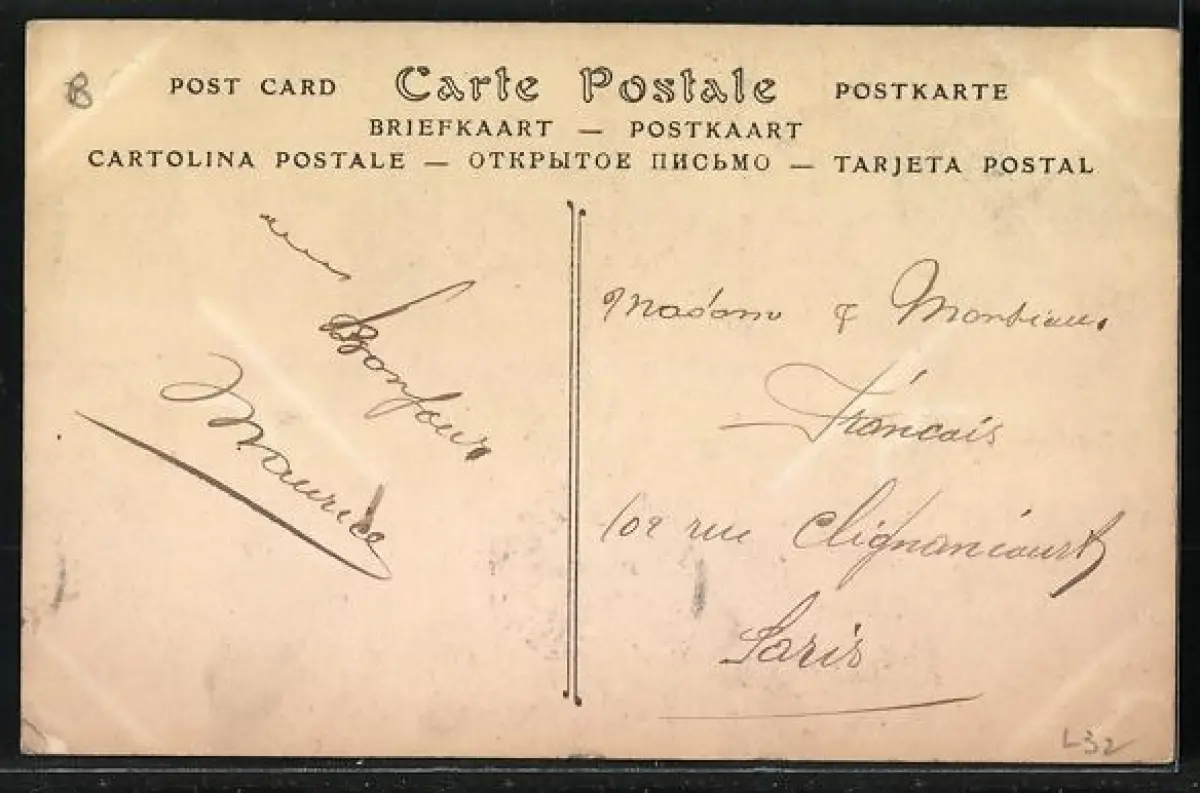 POST CARD Carte Postale POSTKARTE
BRIEFKAART — POSTKAART
CARTOLINA POSTALE — ОТКРЫТОЕ ПИСЬМО — TARJETA POSTAL
Bonjour
Maurice
Madame &
Francais
102 rue Clignancourt
Paris
L32